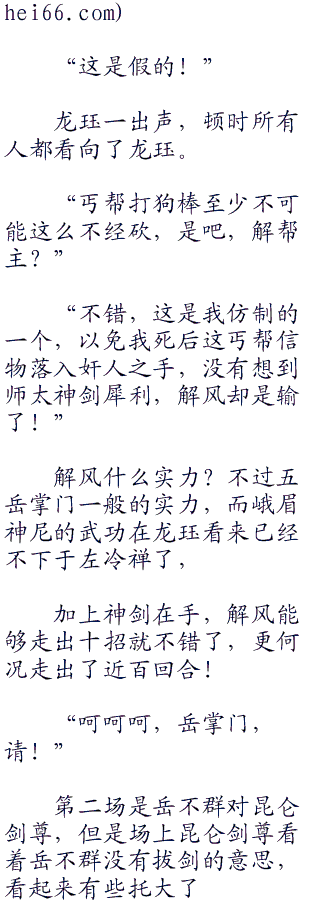 hei66.com)
“这是假的！”
龙珏一出声，顿时所有
人都看向了龙珏。
“丐帮打狗棒至少不可
能这么不经砍，是吧，解帮
主？”
“不错，这是我仿制的
一个，以免我死后这丐帮信
物落入奸人之手，没有想到
师太神剑犀利，解风却是输
了！”
解风什么实力？不过五
岳掌门一般的实力，而峨眉
神尼的武功在龙珏看来已经
不下于左冷禅了，
加上神剑在手，解风能
够走出十招就不错了，更何
况走出了近百回合！
“呵呵呵，岳掌门，
请！”
第二场是岳不群对昆仑
剑尊，但是场上昆仑剑尊看
着岳不群没有拔剑的意思，
看起来有些托大了